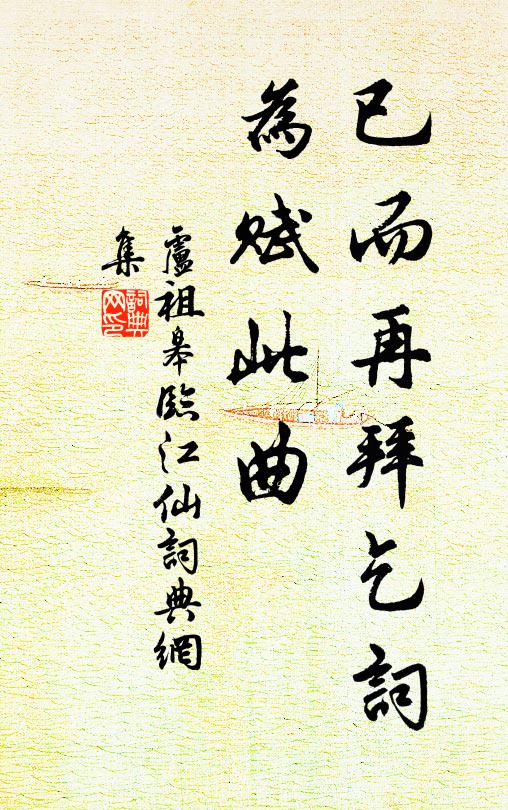 已而再拜乞詞
為賦此曲
盧祖皋臨江仙詞典網
集
詞典网印